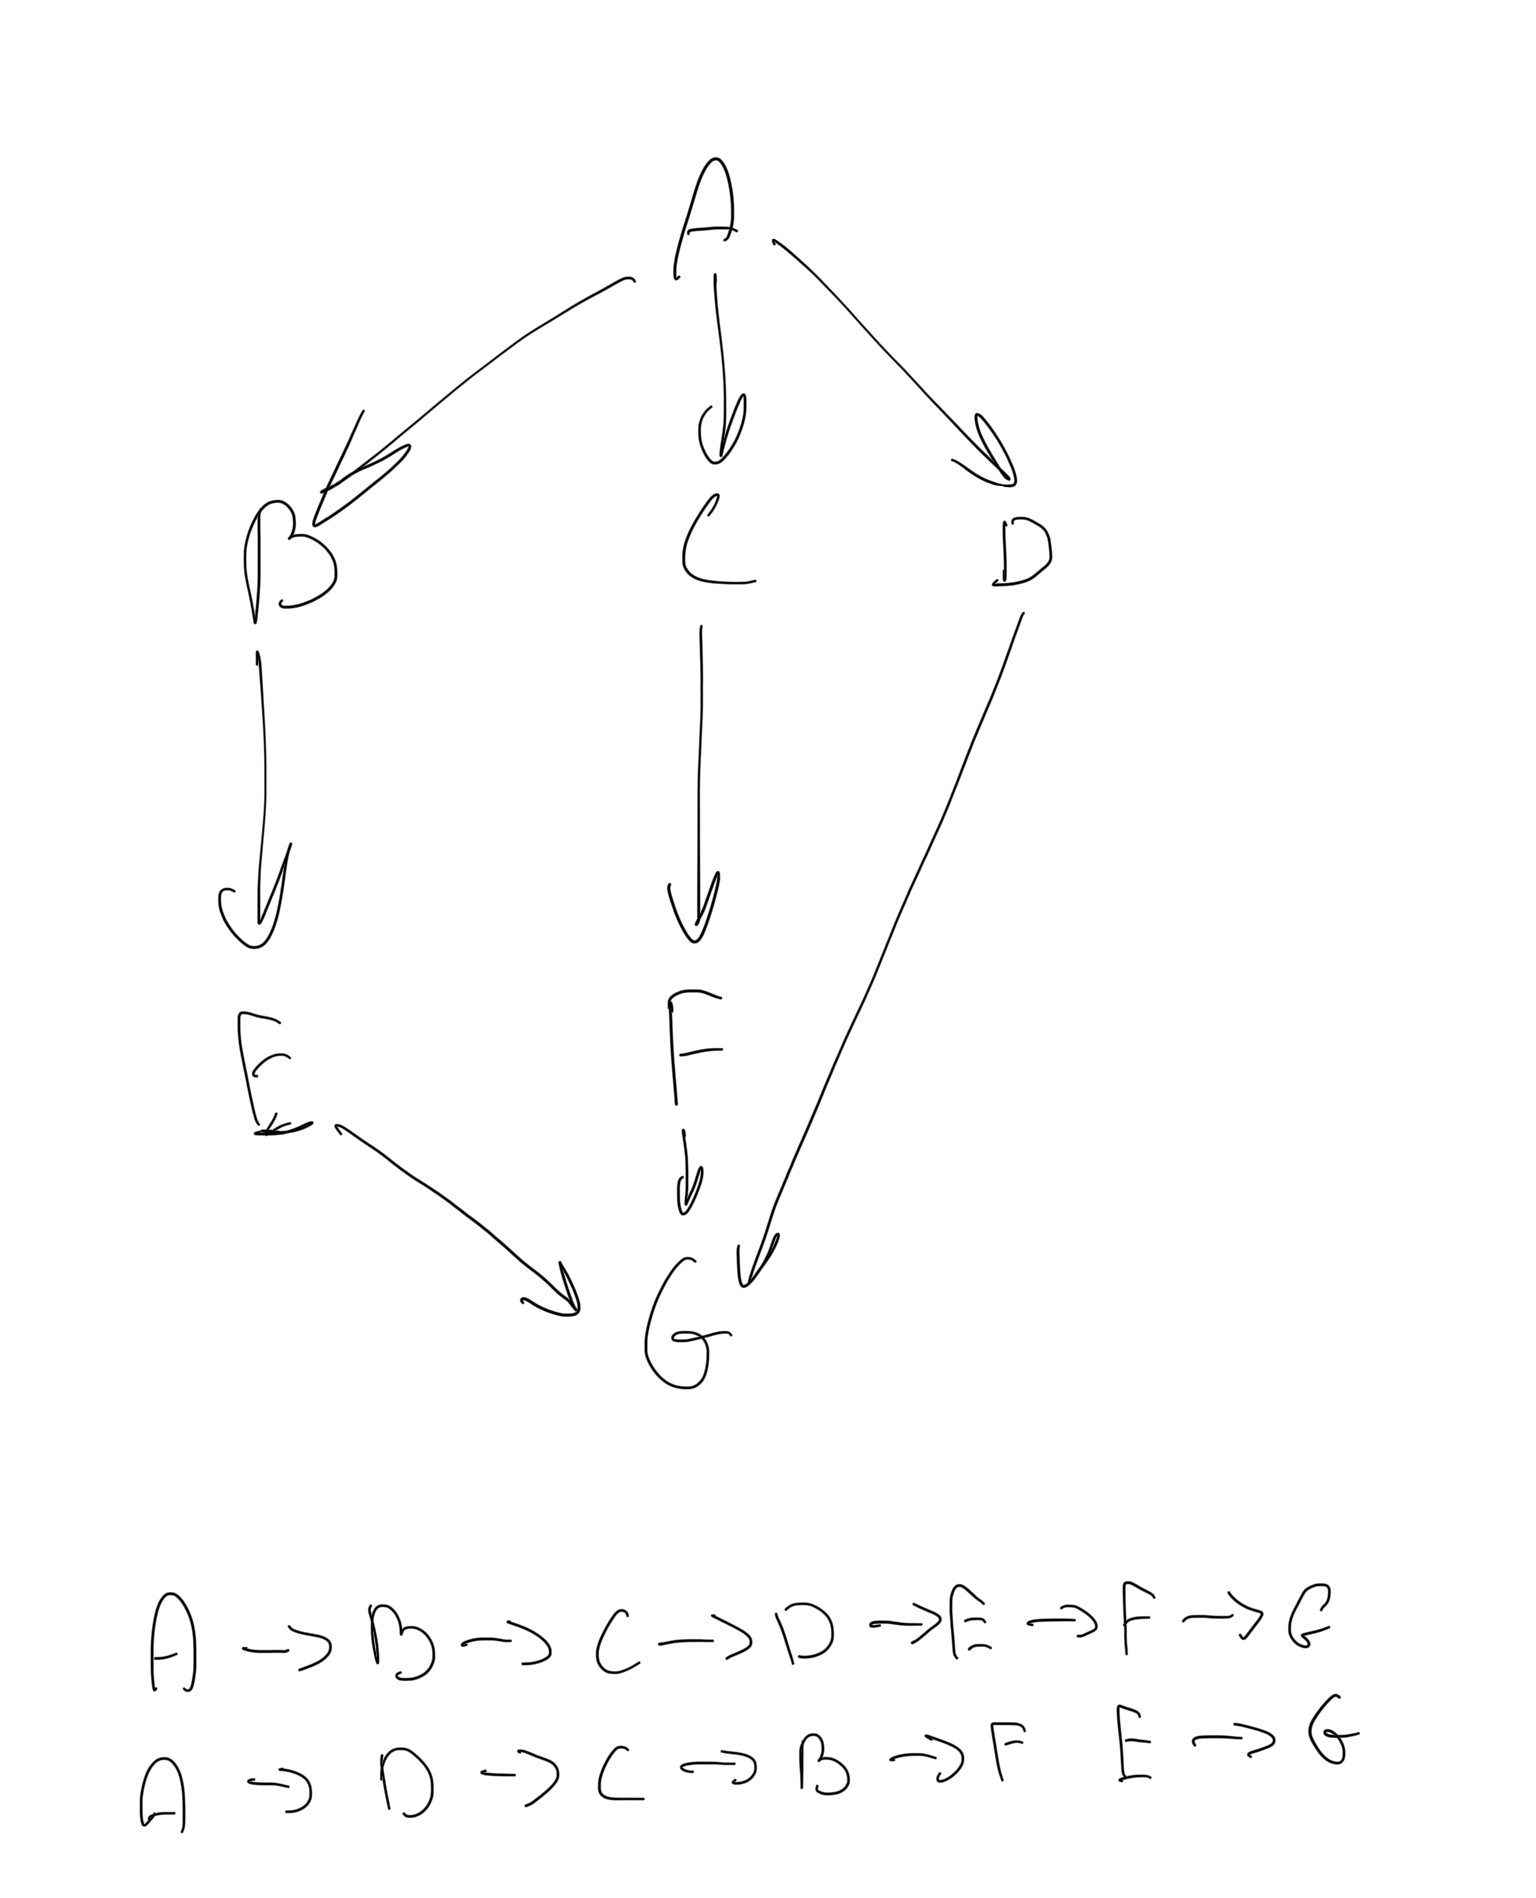 A
B C D
E F
G
A → B → C → D → E → F → G
A → D → C → B → F E → G